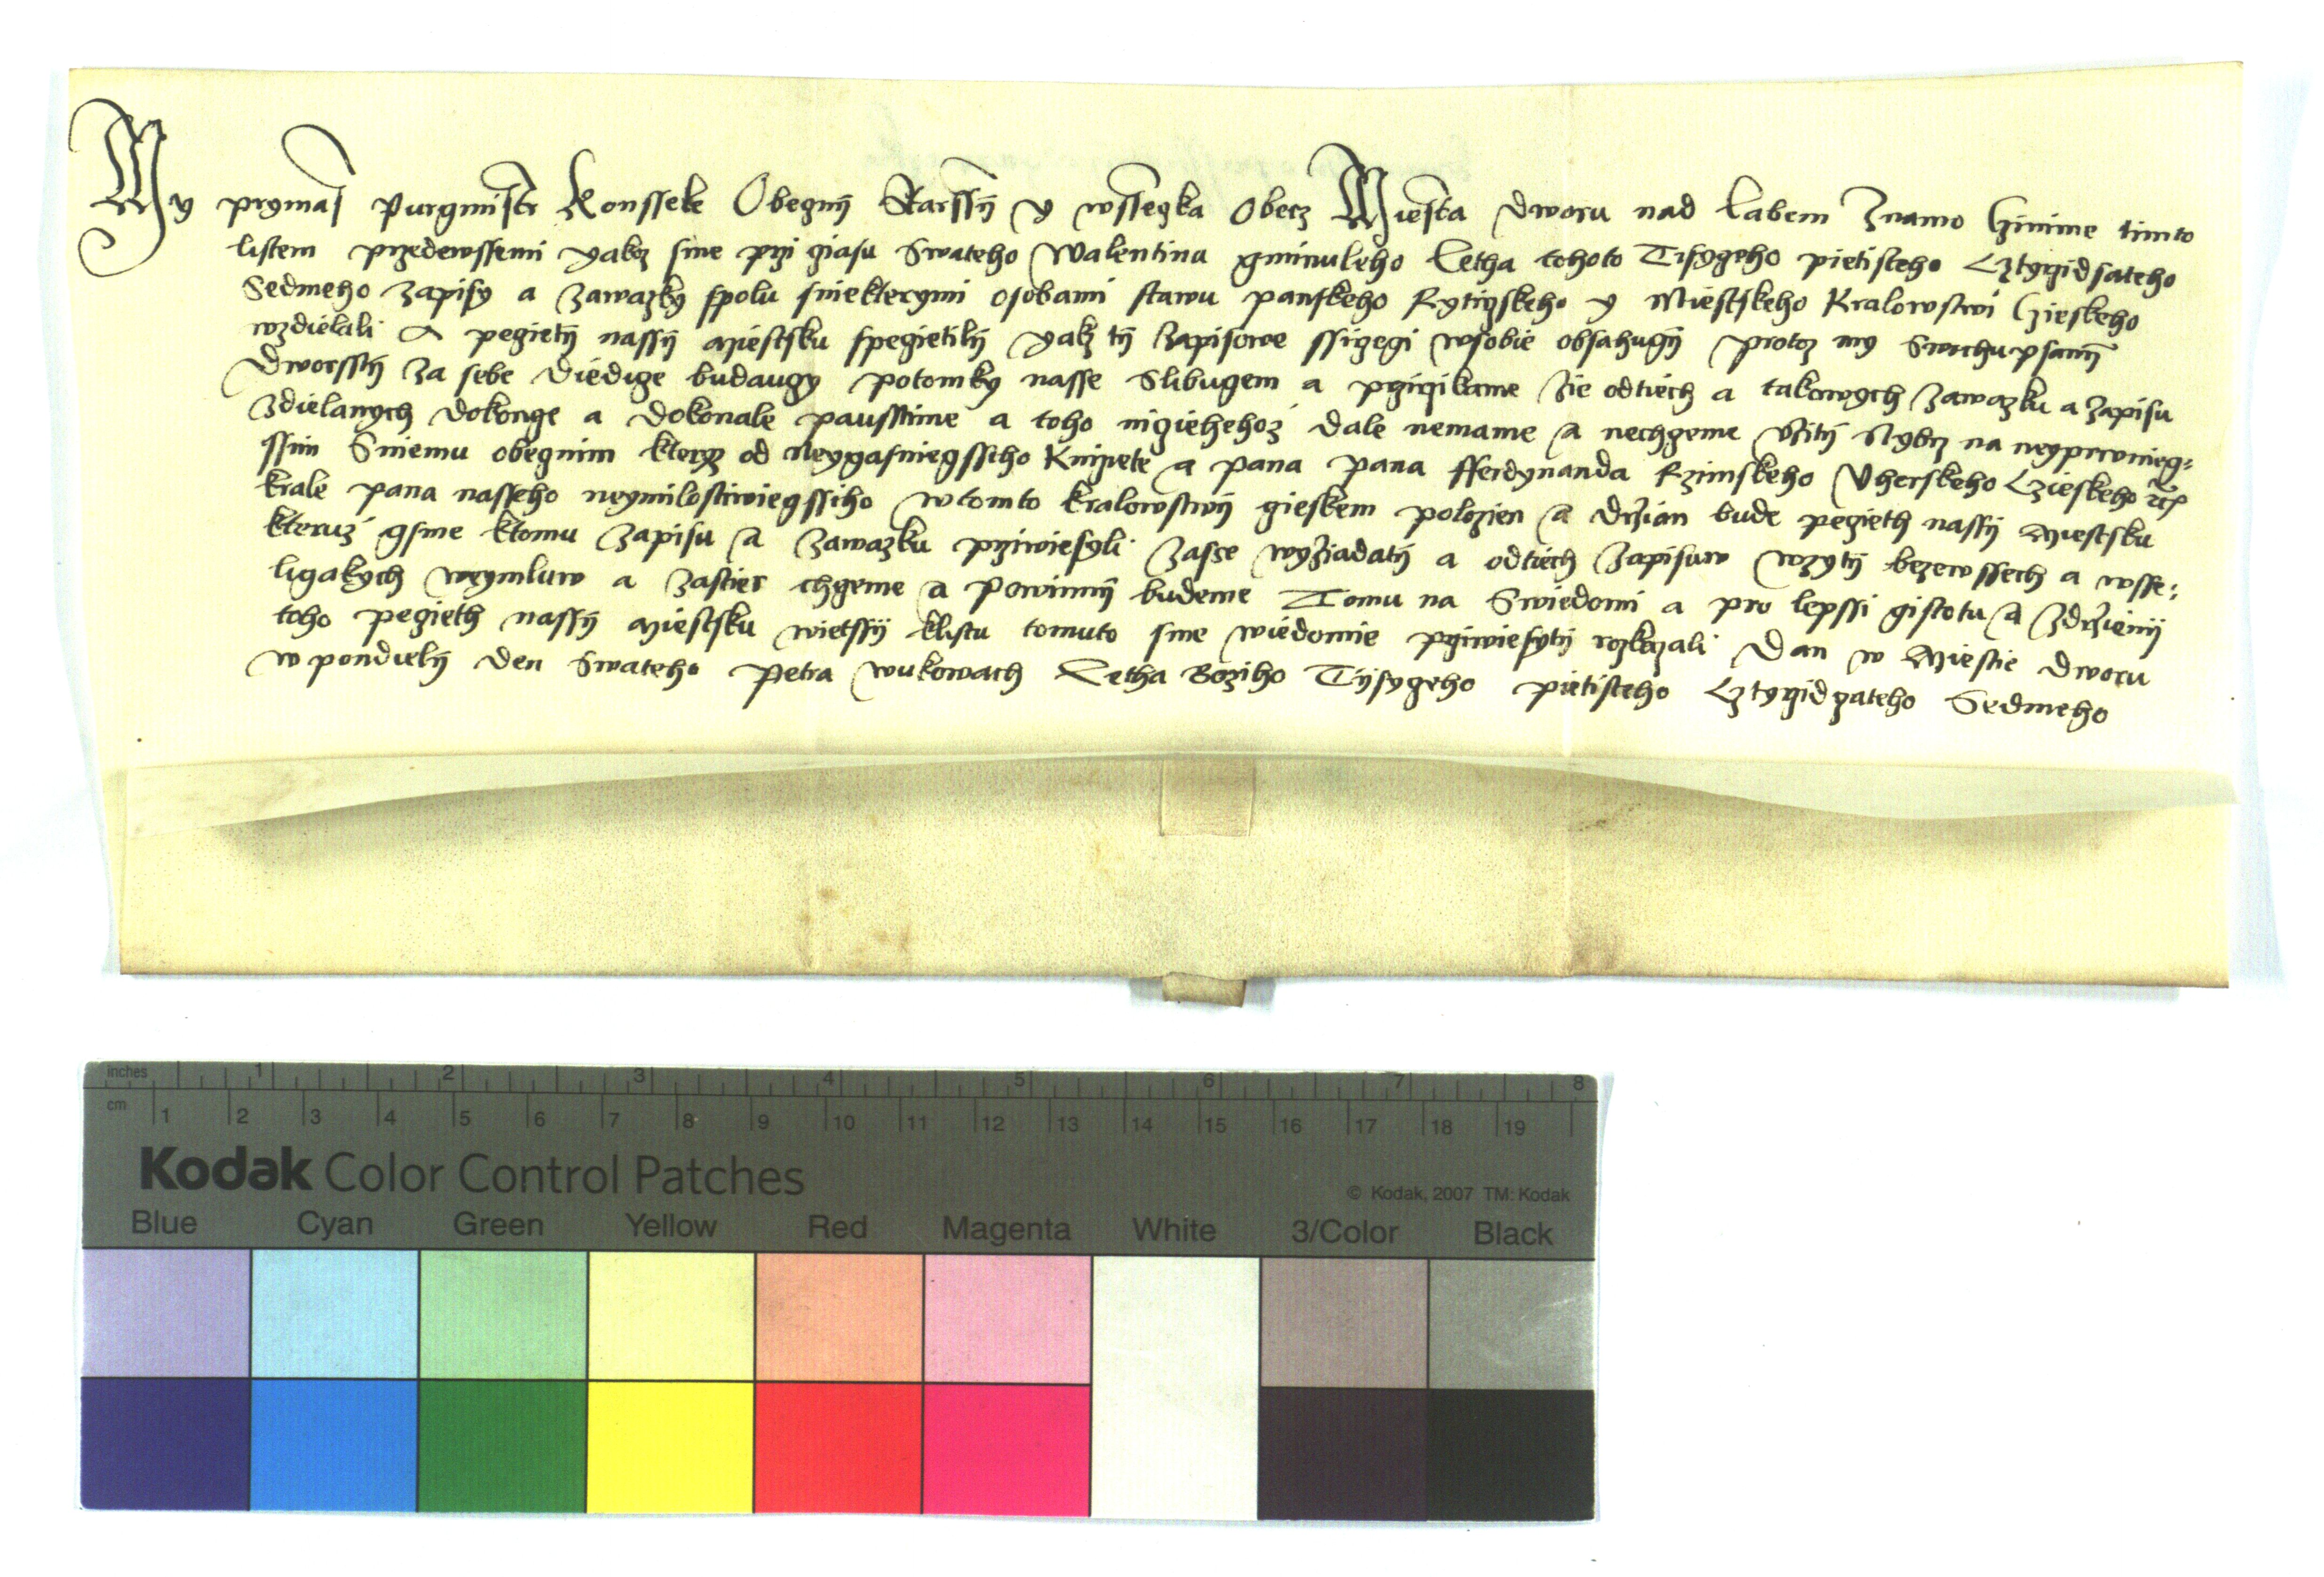 My prymas Purgmistr Konssele Obeczny Starssy y wssezka Obecz Miesta Dworu nad Labem Znamo Czinime timto
listem przedewssemi yakoz sme przi cziasu Swateho Walentina gminuleho Letha tohoto Tisyczeho pietisteho Cztyrzidsateho
Sedmeho Zapisy a Zawazky spolu sniekterymi osobami stawu panskeho Rytirzskeho y Miestskeho Kralowstwi Czieskeho
wzdielali A peczieti nassy Miestsku speczietily yakz ty Zapisowe ssirzegi wsobie obsahugy protoz my Swrchupsany
Dworssty Za sebe Diedicze budauczy potomky nasse Slibugem a przirzikame Zie odtiech a takowych Zawazku a Zapisu
Zdielanych Dokoncze a Dokonale pausstime a toho nicziehehoz Dale nemame a nechczeme Uziti Nybrz na neyprwnieg:
ssim Sniemu obecznim kteryz od Neygasniegssiho Knizete a pana pana fferdynanda Rzimskeho Uherskeho Czieskeho etc
krale pana nasseho neymilostiwiegssiho wtomto kralowstwy czieskem polozien a Drzian bude peczieth nassy Miestsku
kteruz gsme ktomu Zapisu a Zawazku przwiesyli Zasse wyziadaty a odtiech Zapisuw wzyty bezewssech a wsse:
ligakych weymluw a Zastier chczeme a Powinny budeme Tomu na Swiedomi a pro lepssi gistotu a Zdrzieny
toho peczieth nassy Miestsku wietssy klistu tomuto sme wiedomie przwiesyty rozkazali Dan w Miestie Dworu
w pondiely Den Swateho Petra wukowach Letha Boziho Tisyczeho pietisteho Cztyrzidzateho Sedmeho
inches 1 2 3 4 5 6 7 8
cm 1 2 3 4 5 6 7 8 9 10 11 12 13 14 15 16 17 18 19
Kodak Color Control Patches
© Kodak, 2007 TM: Kodak
Blue Cyan Green Yellow Red Magenta White 3/Color Black